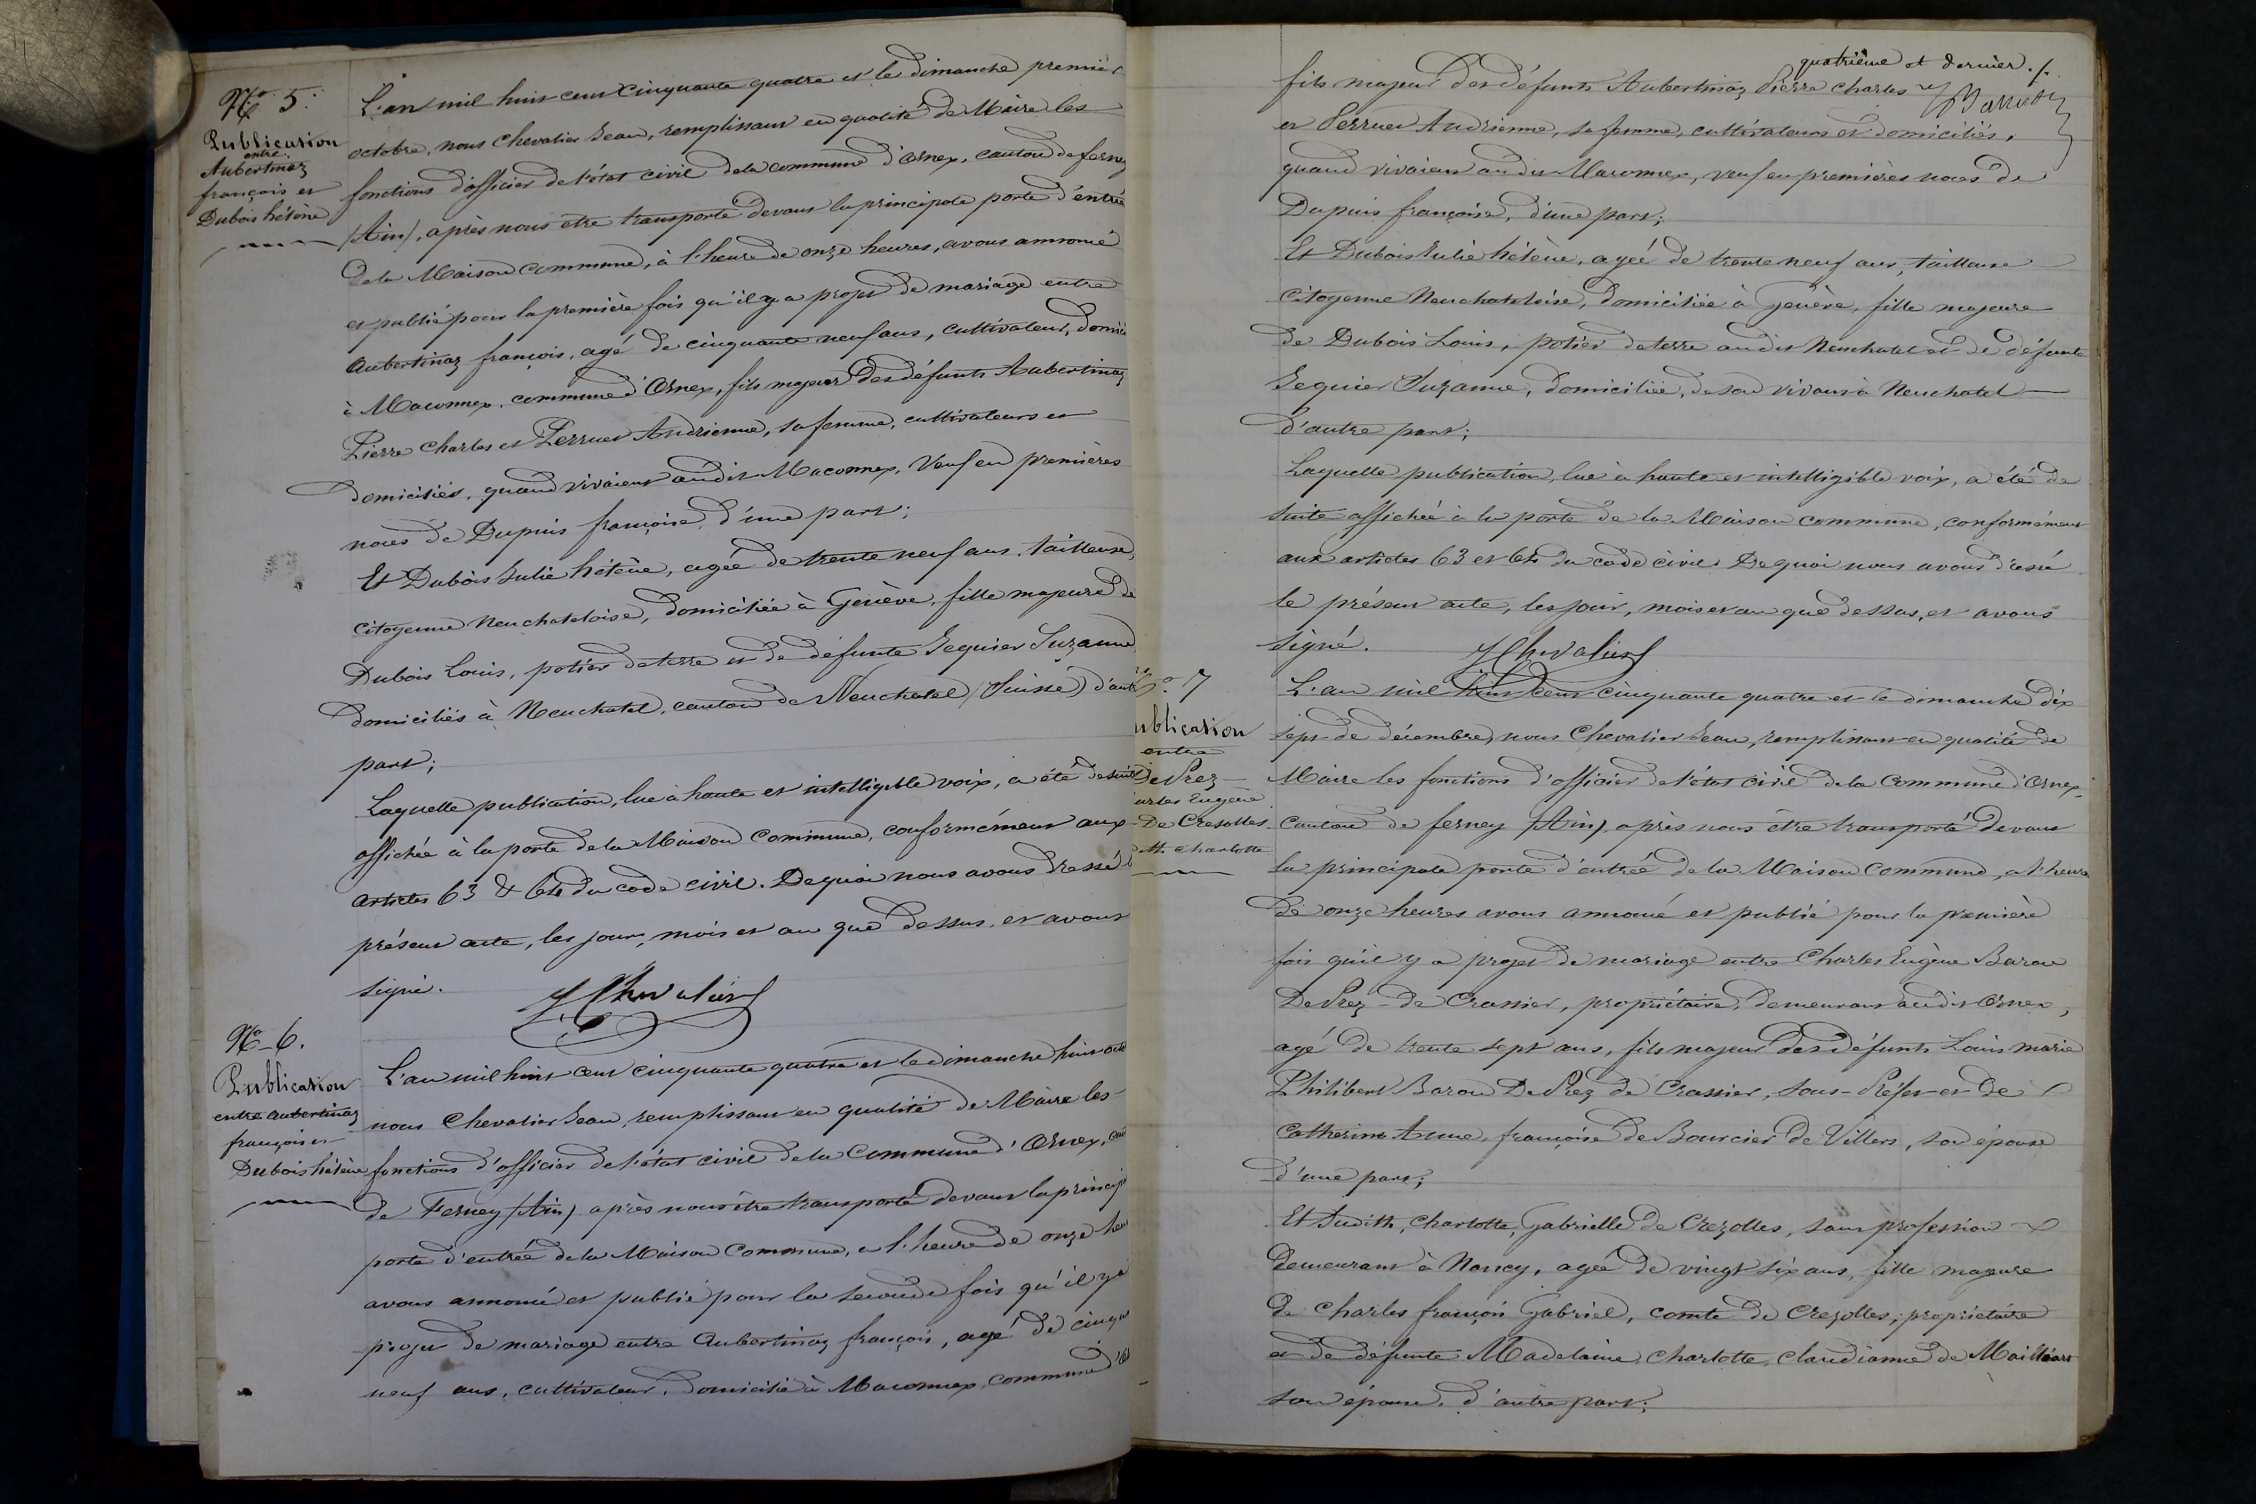 No 5.
Publication
entre
Aubertinaz
françois et
Dubois hélène
L'an mil huit cent cinquante quatre et le dimanche premier
octobre, nous Chevalier Jean, remplissant en qualité de Maire les
fonctions d'officier de l'état civil de la commune d'Ornex, canton de ferney
(Ain), après nous etre transporté devant la principale porte d'entrée
de la Maison commune, à l'heure de onze heures, avons annoncé
et publié pour la première fois qu'il y a projet de mariage entre
Aubertinaz françois, agé de cinquante neuf ans, cultivateur, domici
à Maconnex, commune d'Ornex, fils majeur des défunts Aubertinaz
Pierre Charles et Perruet Andrienne, sa femme, cultivateurs et
domiciliés, quand vivaient audit Maconnex, Veuf en premières
noces de Dupuis françoise, d'une part;
Et Dubois Julie hélène, agée de trente neuf ans, tailleuse,
citoyenne Neuchateloise, domiciliée à Genève, fille majeure de
Dubois Louis, potier de terre et de défunte Sequier Suzanne
domiciliés à Neuchatel, canton de Neuchatel (Suisse) d'autre
part;
Laquelle publication, lue à haute et intelligible voix, a été de suite
affichée à la porte de la Maison commune, conformément aux
articles 63 & 64 du code civil. De quoi nous avons dressé le
présent acte, les jour, mois et an que dessus, et avons
signé.
J Chevalier
No 6.
Publication
entre Aubertinaz
françois et
Dubois hélène
L'an mil huit cent cinquante quatre et le dimanche huit octo
nous Chevalier Jean, remplissant en qualité de Maire les
fonctions d'officier de l'état civil de la Commune d'Ornex, can
de Ferney (Ain) après nous être transporté devant la princip
porte d'entrée de la Maison Commune, a l'heure de onze heu
avons annoncé et publié pour la seconde fois qu'il y a
projet de mariage entre Aubertinaz françois, agé de cinqua
neuf ans, cultivateur, domicilié à Maconnex, commune d'O
quatrième et dernier ./.
fils majeur des défunts Aubertinaz Pierre Charles
et Perruet Andrienne, sa femme, cultivateurs et domiciliés,
quand vivaient audit Maconnex, veuf en premières noces de
Dupuis françoise, d'une part;
Et Dubois Julie hélène, agée de trente neuf ans, tailleuse
Citoyenne Neuchateloise, domiciliée à Genève, fille majeure
de Dubois Louis, potier de terre audit Neuchatel et de défunte
Sequier Suzanne, domiciliée, de son vivant à Neuchatel
d'autre part;
Laquelle publication, lue à haute et intelligible voix, a été de
suite affichée à la porte de la Maison commune, conformément
aux articles 63 et 64 du code civil. De quoi nous avons dressé
le présent acte, les jour, mois et an que dessus, et avons
signé.
J Chevalier
No 7
ublication
entre
De Prez
arles Eugène
De Crezolles
th. Charlotte
L'an mil huit cent cinquante quatre et le dimanche dix
sept de décembre, nous Chevalier Jean, remplissant en qualité de
Maire les fonctions d'officier de l'état civil de la Commune d'Ornex,
Canton de ferney (Ain), après nous être transporté devant
la principale porte d'entrée de la Maison Commune, a l'heure
de onze heures avons annoncé et publié pour la première
fois qu'il y a projet de mariage entre Charles Eugène Baron
De Prez de Crassier, propriétaire, demeurant audit Ornex,
agé de trente sept ans, fils majeur des défunts Louis Marie
Philibert Baron De Prez de Crassier, sous-Préfet et de
Catherine Anne, françoise de Bourcier de Villers, son épouse
d'une part;
Et Judith, Charlotte, Gabrielle de Crezolles, sans profession
demeurant à Nancy, agée de vingt six ans, fille majeure
de Charles françois Gabriel, comte de Crezolles, propriétaire
et de défunte Madelaine, Charlotte, Claudianne de Maillart
son épouse, d'autre part;